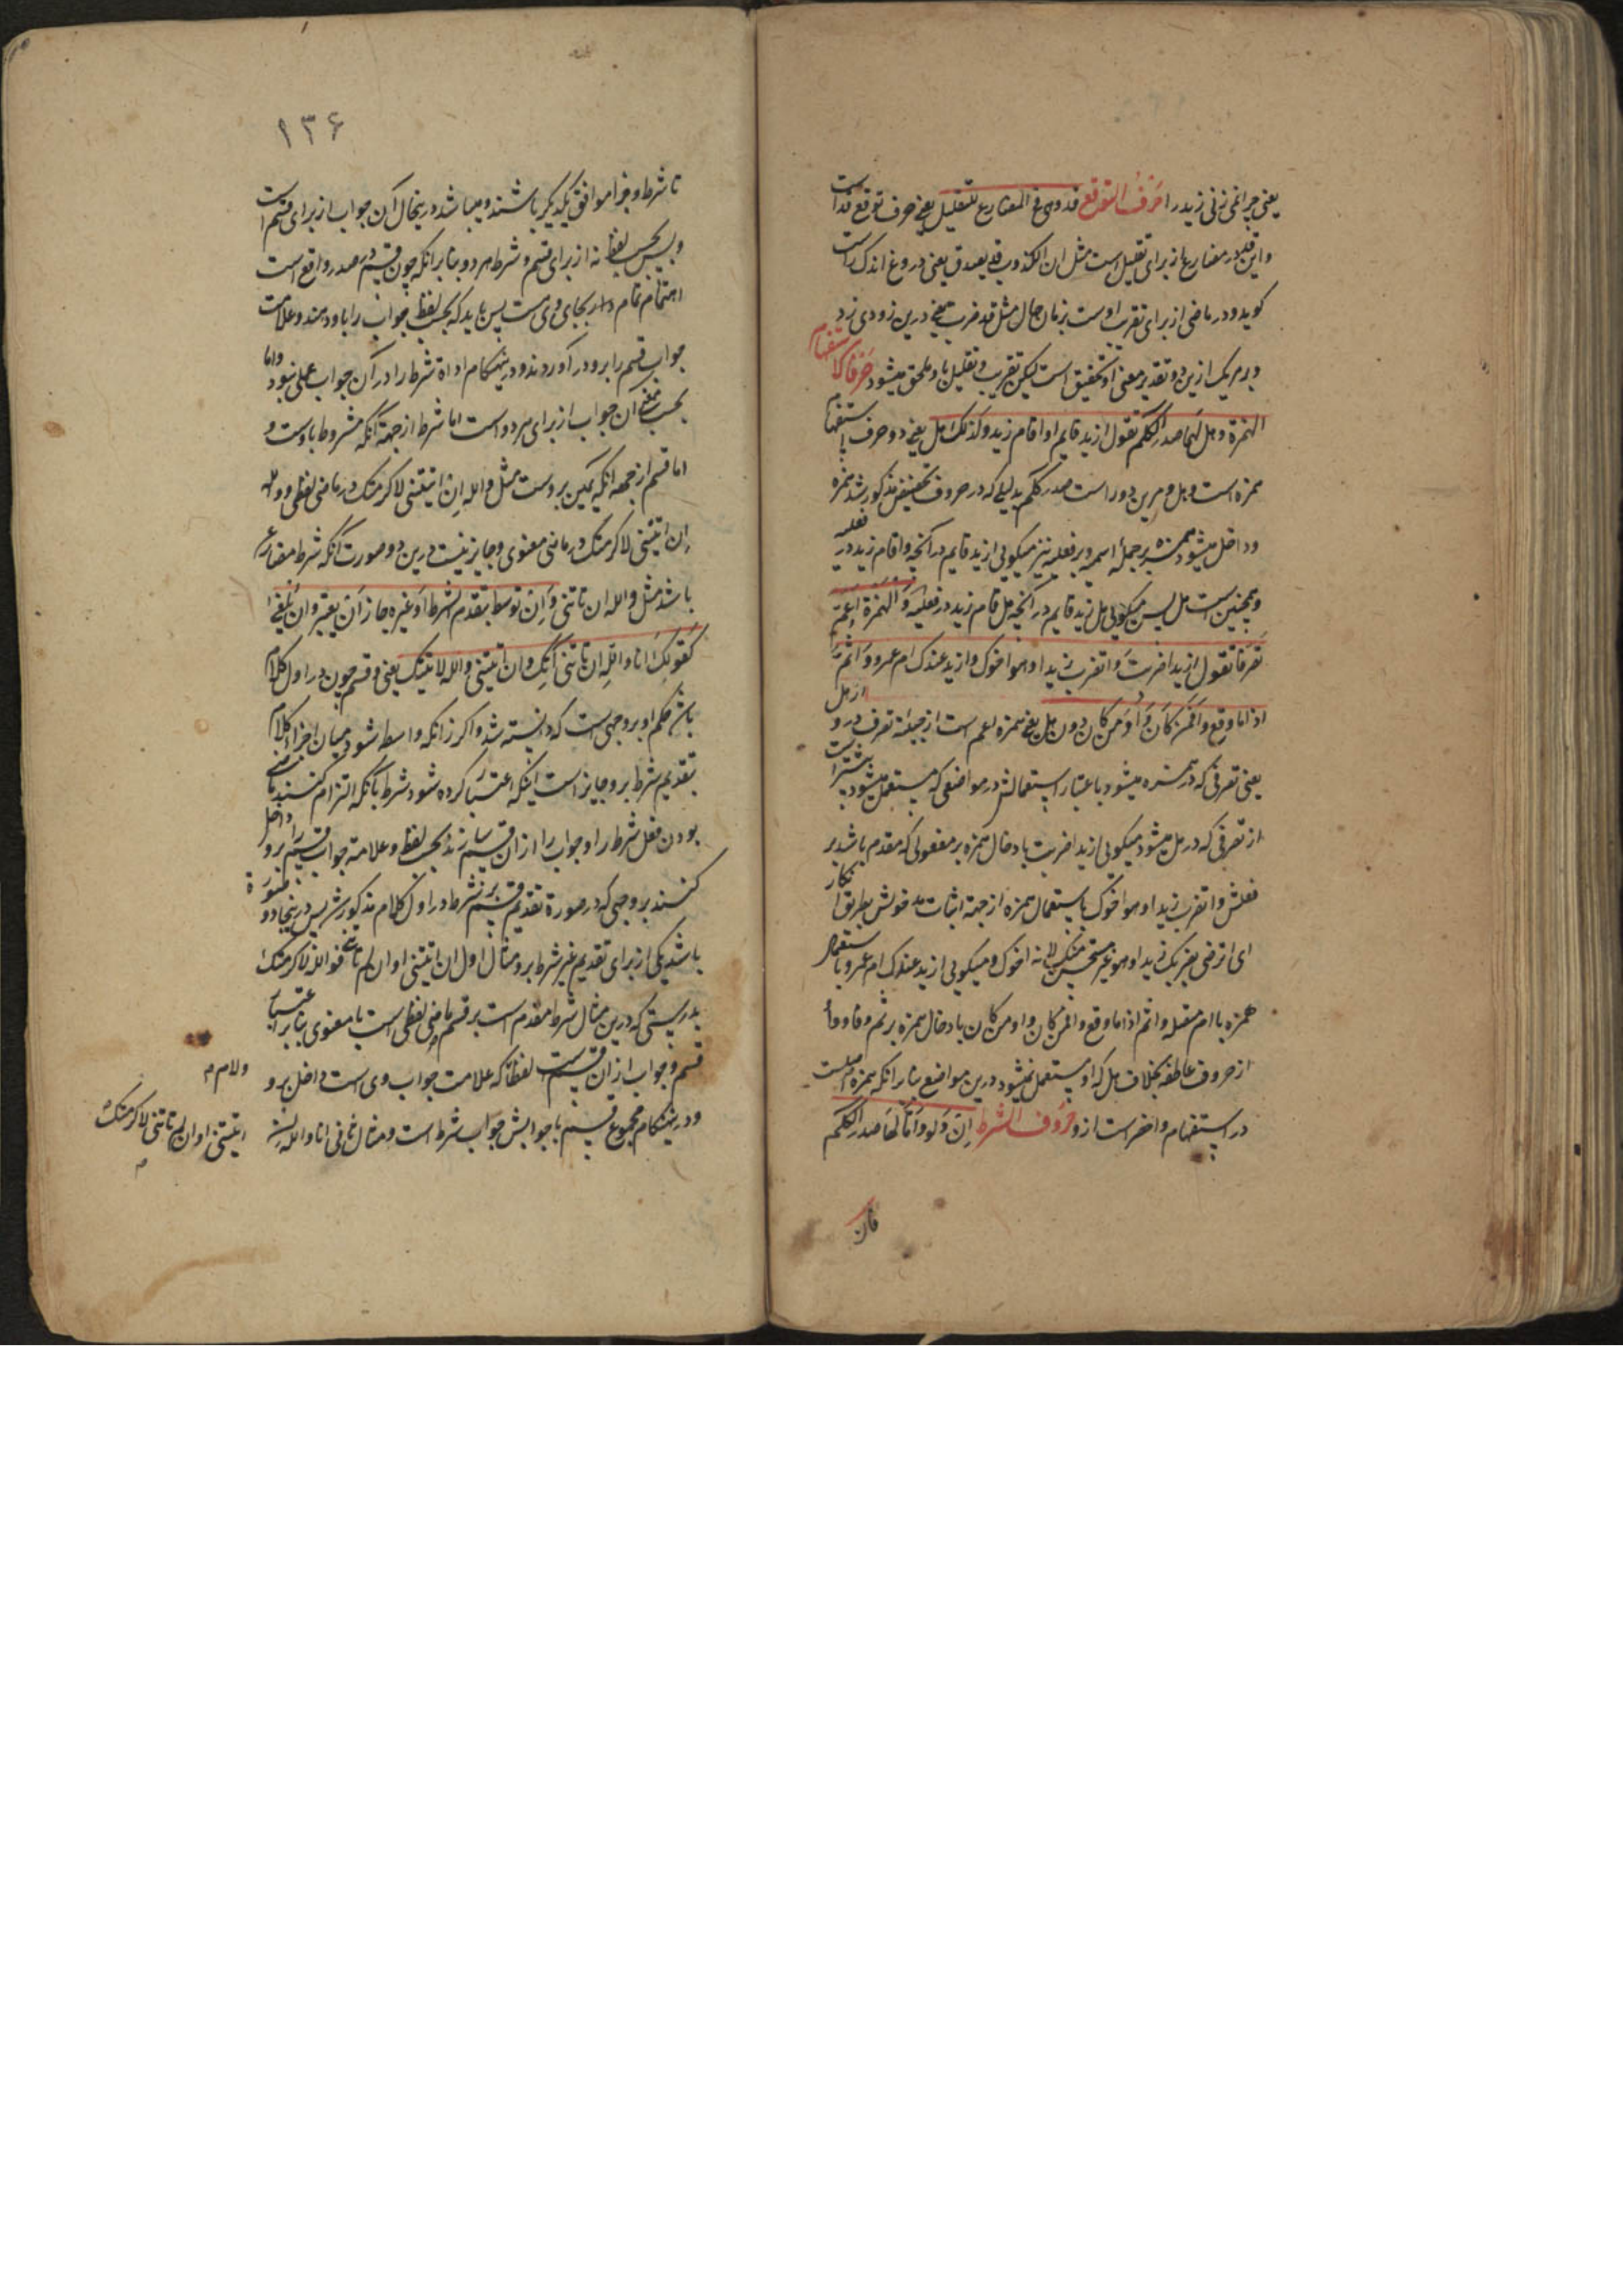 یعنی چرا نمی زنی زید را حرف التوقع قد و هی فی المضارع للتقلیل یعنی حرف توقع قد است
و این قد در مضارع از برای تقلیل است مثل ان الکذوب قد یصدق یعنی دروغ اندک راست
کوید و در ماضی از برای تقریب اوست بزمان حال مثل قد ضرب یعنی درین زودی زد
و بر هر یک ازین دو تقدیر معنی او تحقیق است لیکن تقریب و تقلیل باو ملحق میشود حرفا الاستفهام
الهمزة و هل لهما صدر الکلام تقول ازید قایم او اقام زید و کذلک هل یعنی دو حرف استفهام
همزه است و هل و مرین دو راست صدر کلام بدلیلی که در حروف تحضیض مذکور شد همزه
و داخل میشود همزه بر جملهٔ اسمیه و بر فعلیه نیز میکویی ازید قایم در انچه و اقام زید در فعلیه
و همچنین است هل پس میکویی هل زید قایم در انچه هل قام زید در فعلیه و الهمزة اعم
تصرفا تقول ازیدا ضربت و اتضرب زیدا و هو اخوک و ازید عندک ام عمرو و اثم
اذا ما وقع و افمن کان و اومن کان دون هل یعنی همزه اعم است از جهة تصرف درو از هل
یعنی تصرفی که در همزه میشود باعتبار استعمالش در مواضعی که مستعمل میشود بیشتر است
از تصرفی که در هل میشود میکویی ازیدا ضربت بادخال همزه بر مفعولی که مقدم باشد بر
فعلش و اتضرب زیدا و هو اخوک باستعمال همزه از جهة اثبات مدخولش بطریق انکار
ای اترضی بضربک زیدا و هو غیر مستحسن منک لانه اخوک و میکویی ازید عندک ام عمرو باستعمال
همزه با ام متصله و اثم اذا ما وقع و افمن کان و اومن کان بادخال همزه بر ثم و فا و واو
از حروف عاطفه بخلاف هل که او مستعمل نمیشود درین مواضع بنابر انکه همزه اصلست
در استفهام و اخصر است ازو حروف الشرط ان و لو و اما لها صدر الکلام
فان
۱۳۶
تا شرط و جزا موافق یکدیکر باشند و میباشد درینحال آن جواب از برای قسم است
و بس بحسب لفظ نه از برای قسم و شرط هر دو بنابر انکه چون قسم در صدر واقع است
اهتمام تمام دارد بجای وی است پس باید که بحسب لفظ جواب را باو دهند و علامت
جواب قسم را برو در آوردند و درینهنکام اداة شرط را در آن جواب عملی نبود و اما
بحسب معنی ان جواب از برای هر دو است اما شرط از جهة آنکه مشروط باوست و
اما قسم از جهة انکه یمین بروست مثل والله ان اتیتنی لاکرمتک در ماضی لفظی و والله
ان لم تاتنی لاکرمتک در ماضی معنوی و جایز نیست درین دو صورت آنکه شرط مضارع
باشد مثل والله ان تاتنی و ان توسط بتقدم الشرط او غیره جاز ان یعتبر و ان یلغی
کقولک انا والله ان تاتنی آتک و ان اتیتنی والله لاتینک یعنی و قسم چون در اول کلام
باشد حکم او بر وجهی است که دانسته شد و اکر زانکه واسطه شود میان اجزاء کلام
بتقدیم شرط برو جایز است اینکه اعتبار کرده شود شرط بآنکه التزام کنند ماضی
بودن فعل شرط را و جواب را از ان قسم سازند بحسب لفظ و علامة جواب قسم را داخل برو
کنند بر وجهی که در صورة تقدیم قسم بر شرط در اول کلام مذکور شد پس درینجا دو صورة
باشد یکی از برای تقدیم غیر شرط برو مثال اول ان اتیتنی او ان لم تاتنی فوالله لاکرمتک
بدرستی که درین مثال شرط مقدم است بر قسم ماضی لفظی است یا معنوی بنابر اعتبار
قسم و جواب از ان قسم است لفظا که علامت جواب وی است داخل برو
و درینهنکام مجموع قسم با جوابش جواب شرط است و مثال ثانی انا والله ان
ولام م
اتیتنی او ان لم تاتنی لاکرمتک
م